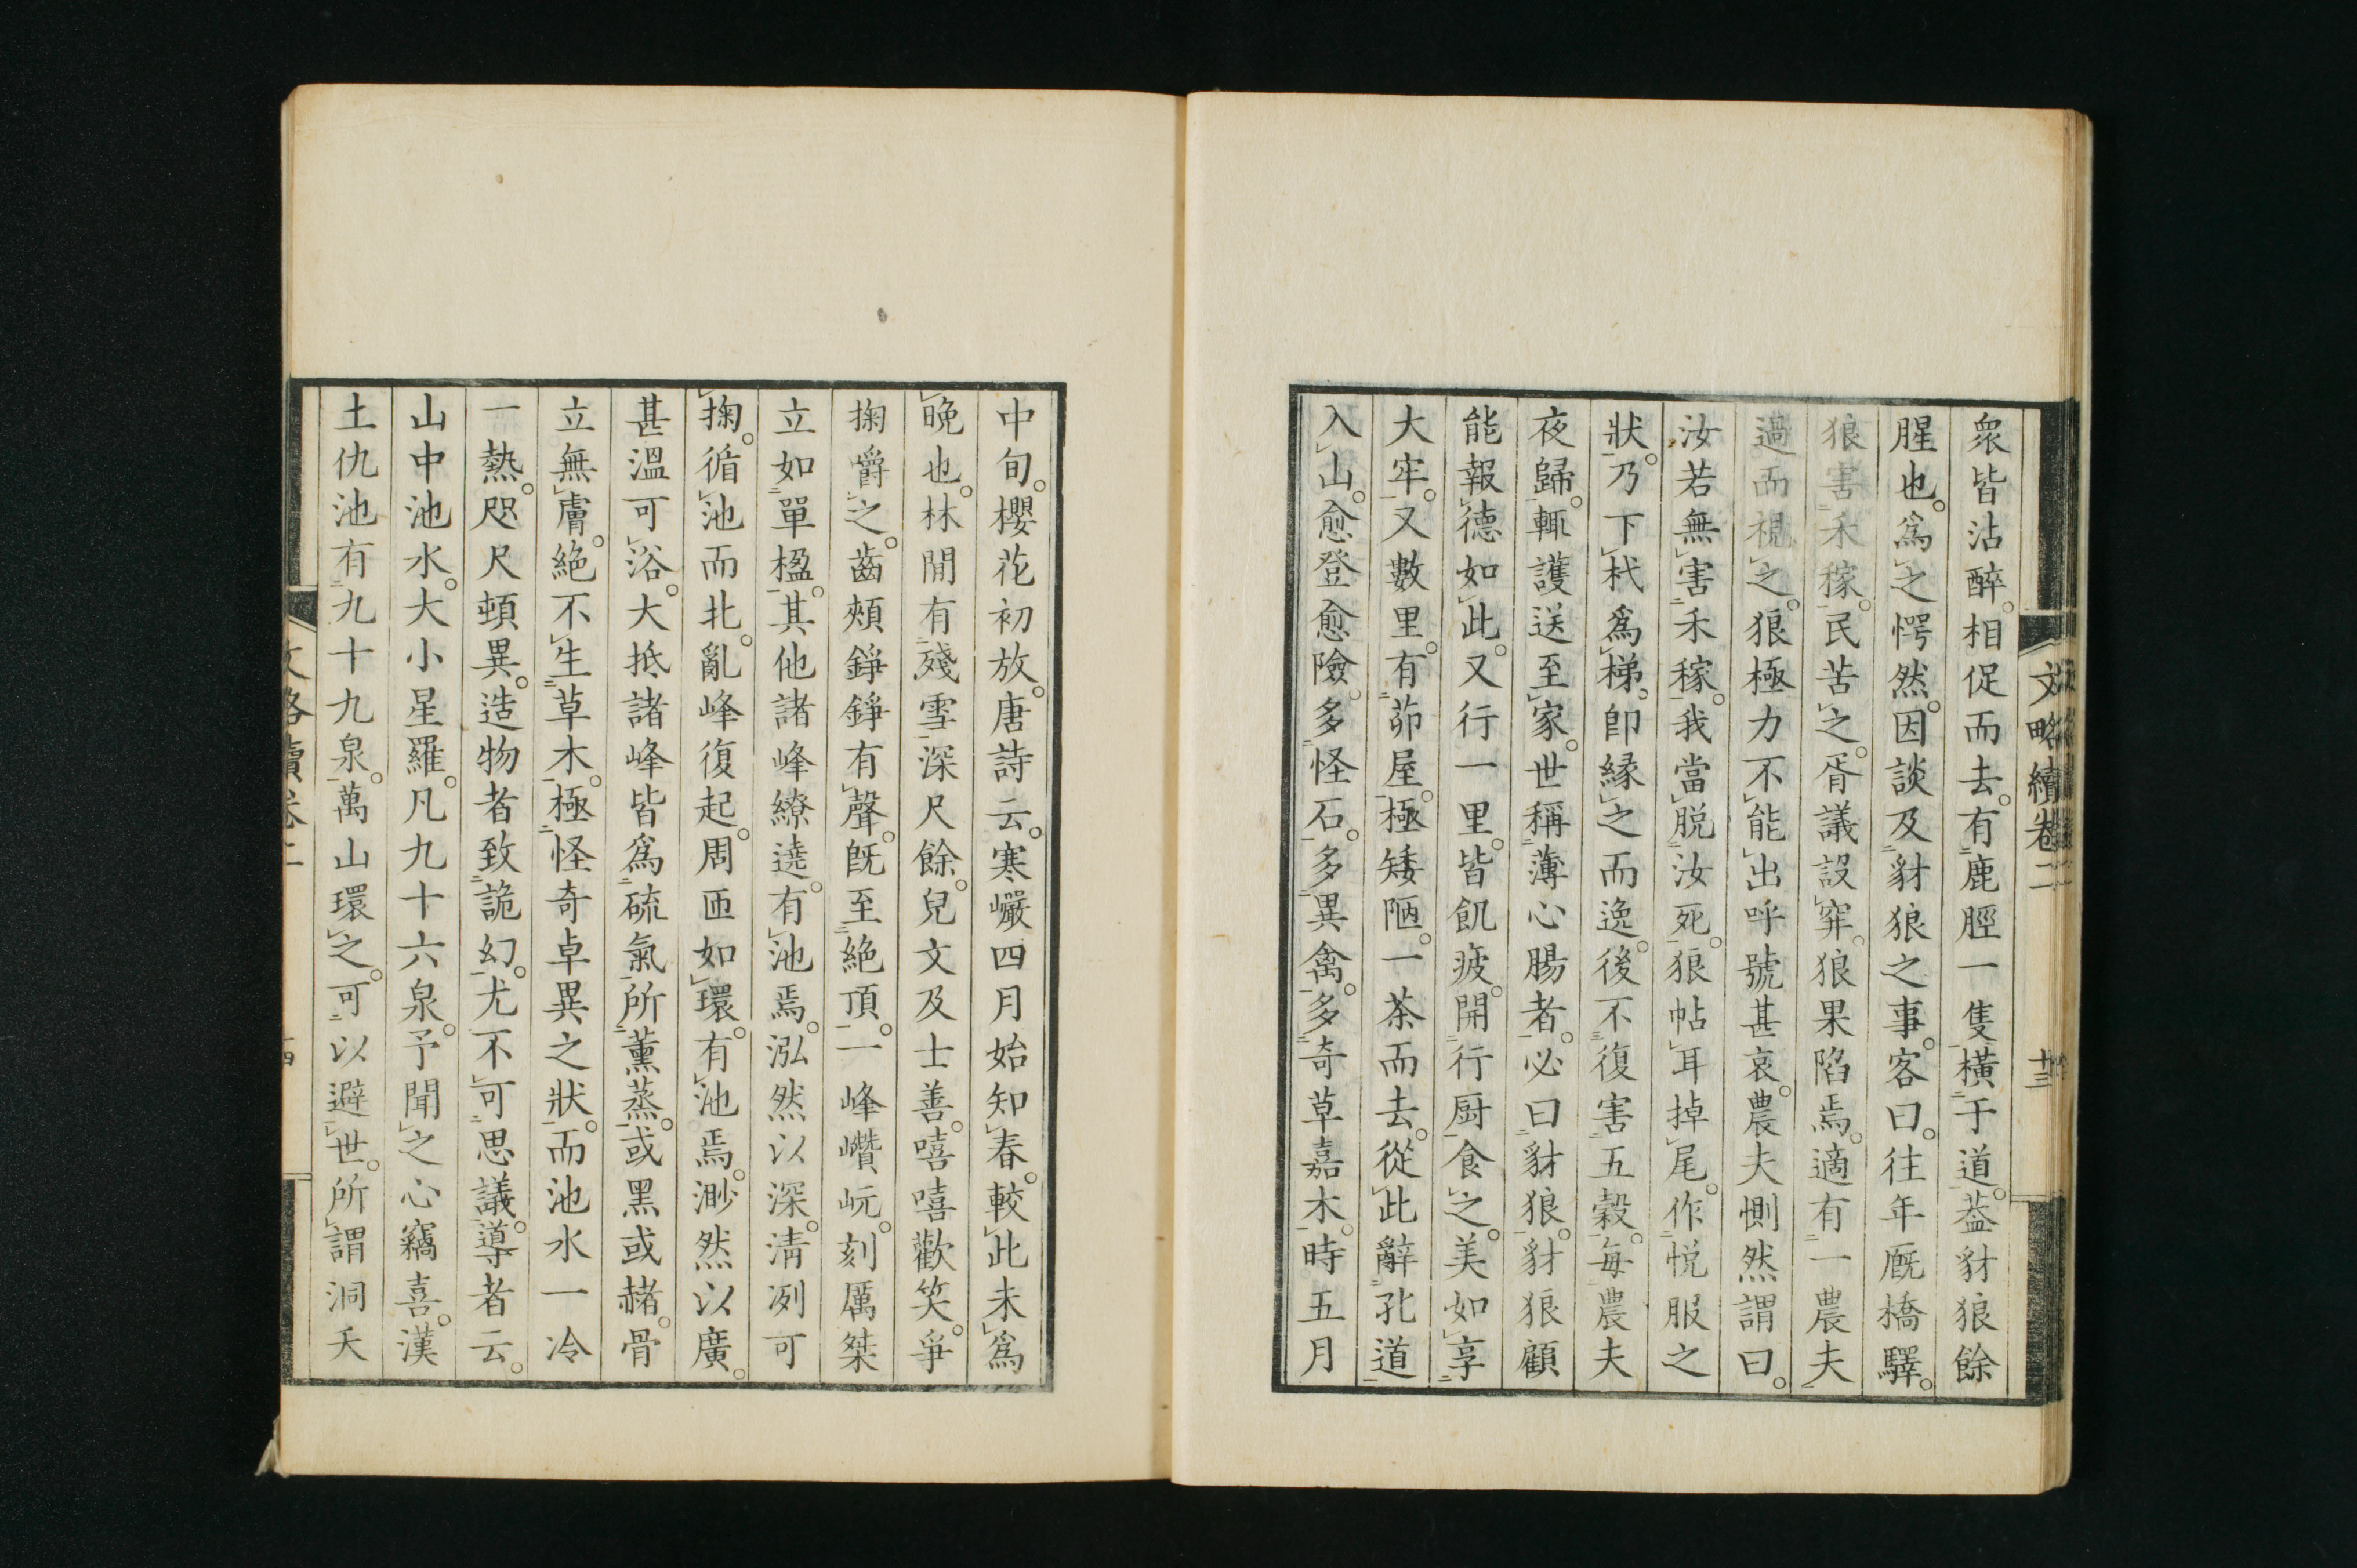 文略續卷二
十三
衆皆沽醉。相促而去。有鹿脛一隻橫于道。葢豺狼餘
腥也。爲之愕然。因談及豺狼之事。客曰。往年厩橋驛。
狼害禾稼。民苦之。胥議設穽。狼果陷焉。適有一農夫
過而視之。狼極力不能出呼號甚哀。農夫惻然謂曰。
汝若無害禾稼。我當脱汝死。狼帖耳掉尾。作悅服之
狀。乃下杙爲梯。卽緣之而逸。後不復害五穀。每農夫
夜歸。輒護送至家。世稱薄心腸者。必曰豺狼。豺狼顧
能報德如此。又行一里。皆飢疲。開行厨食之。美如享
大牢。又數里。有茆屋極矮陋。一茶而去。從此辭孔道
入山。愈登愈險。多怪石。多異禽。多奇草嘉木。時五月
中旬。櫻花初放。唐詩云。寒巖四月始知春。較此未爲
晚也。林間有殘雪深尺餘。兒文及士善。嘻嘻歡笑。爭
掬嚼之。齒頰錚錚有聲。旣至絕頂。一峰巑岏。刻厲桀
立如單楹。其他諸峰繚遶。有池焉。泓然以深。淸冽可
掬。循池而北。亂峰復起。周匝如環。有池焉。渺然以廣。
甚溫可浴。大抵諸峰皆爲硫氣所薰蒸。或黑或赭。骨
立無膚。絕不生草木。極怪奇卓異之狀。而池水一冷
一熱。咫尺頓異。造物者致詭幻。尤不可思議。導者云。
山中池水。大小星羅。凡九十六泉。予聞之心竊喜。漢
土仇池有九十九泉。萬山環之。可以避世。所謂洞天
文略續卷二